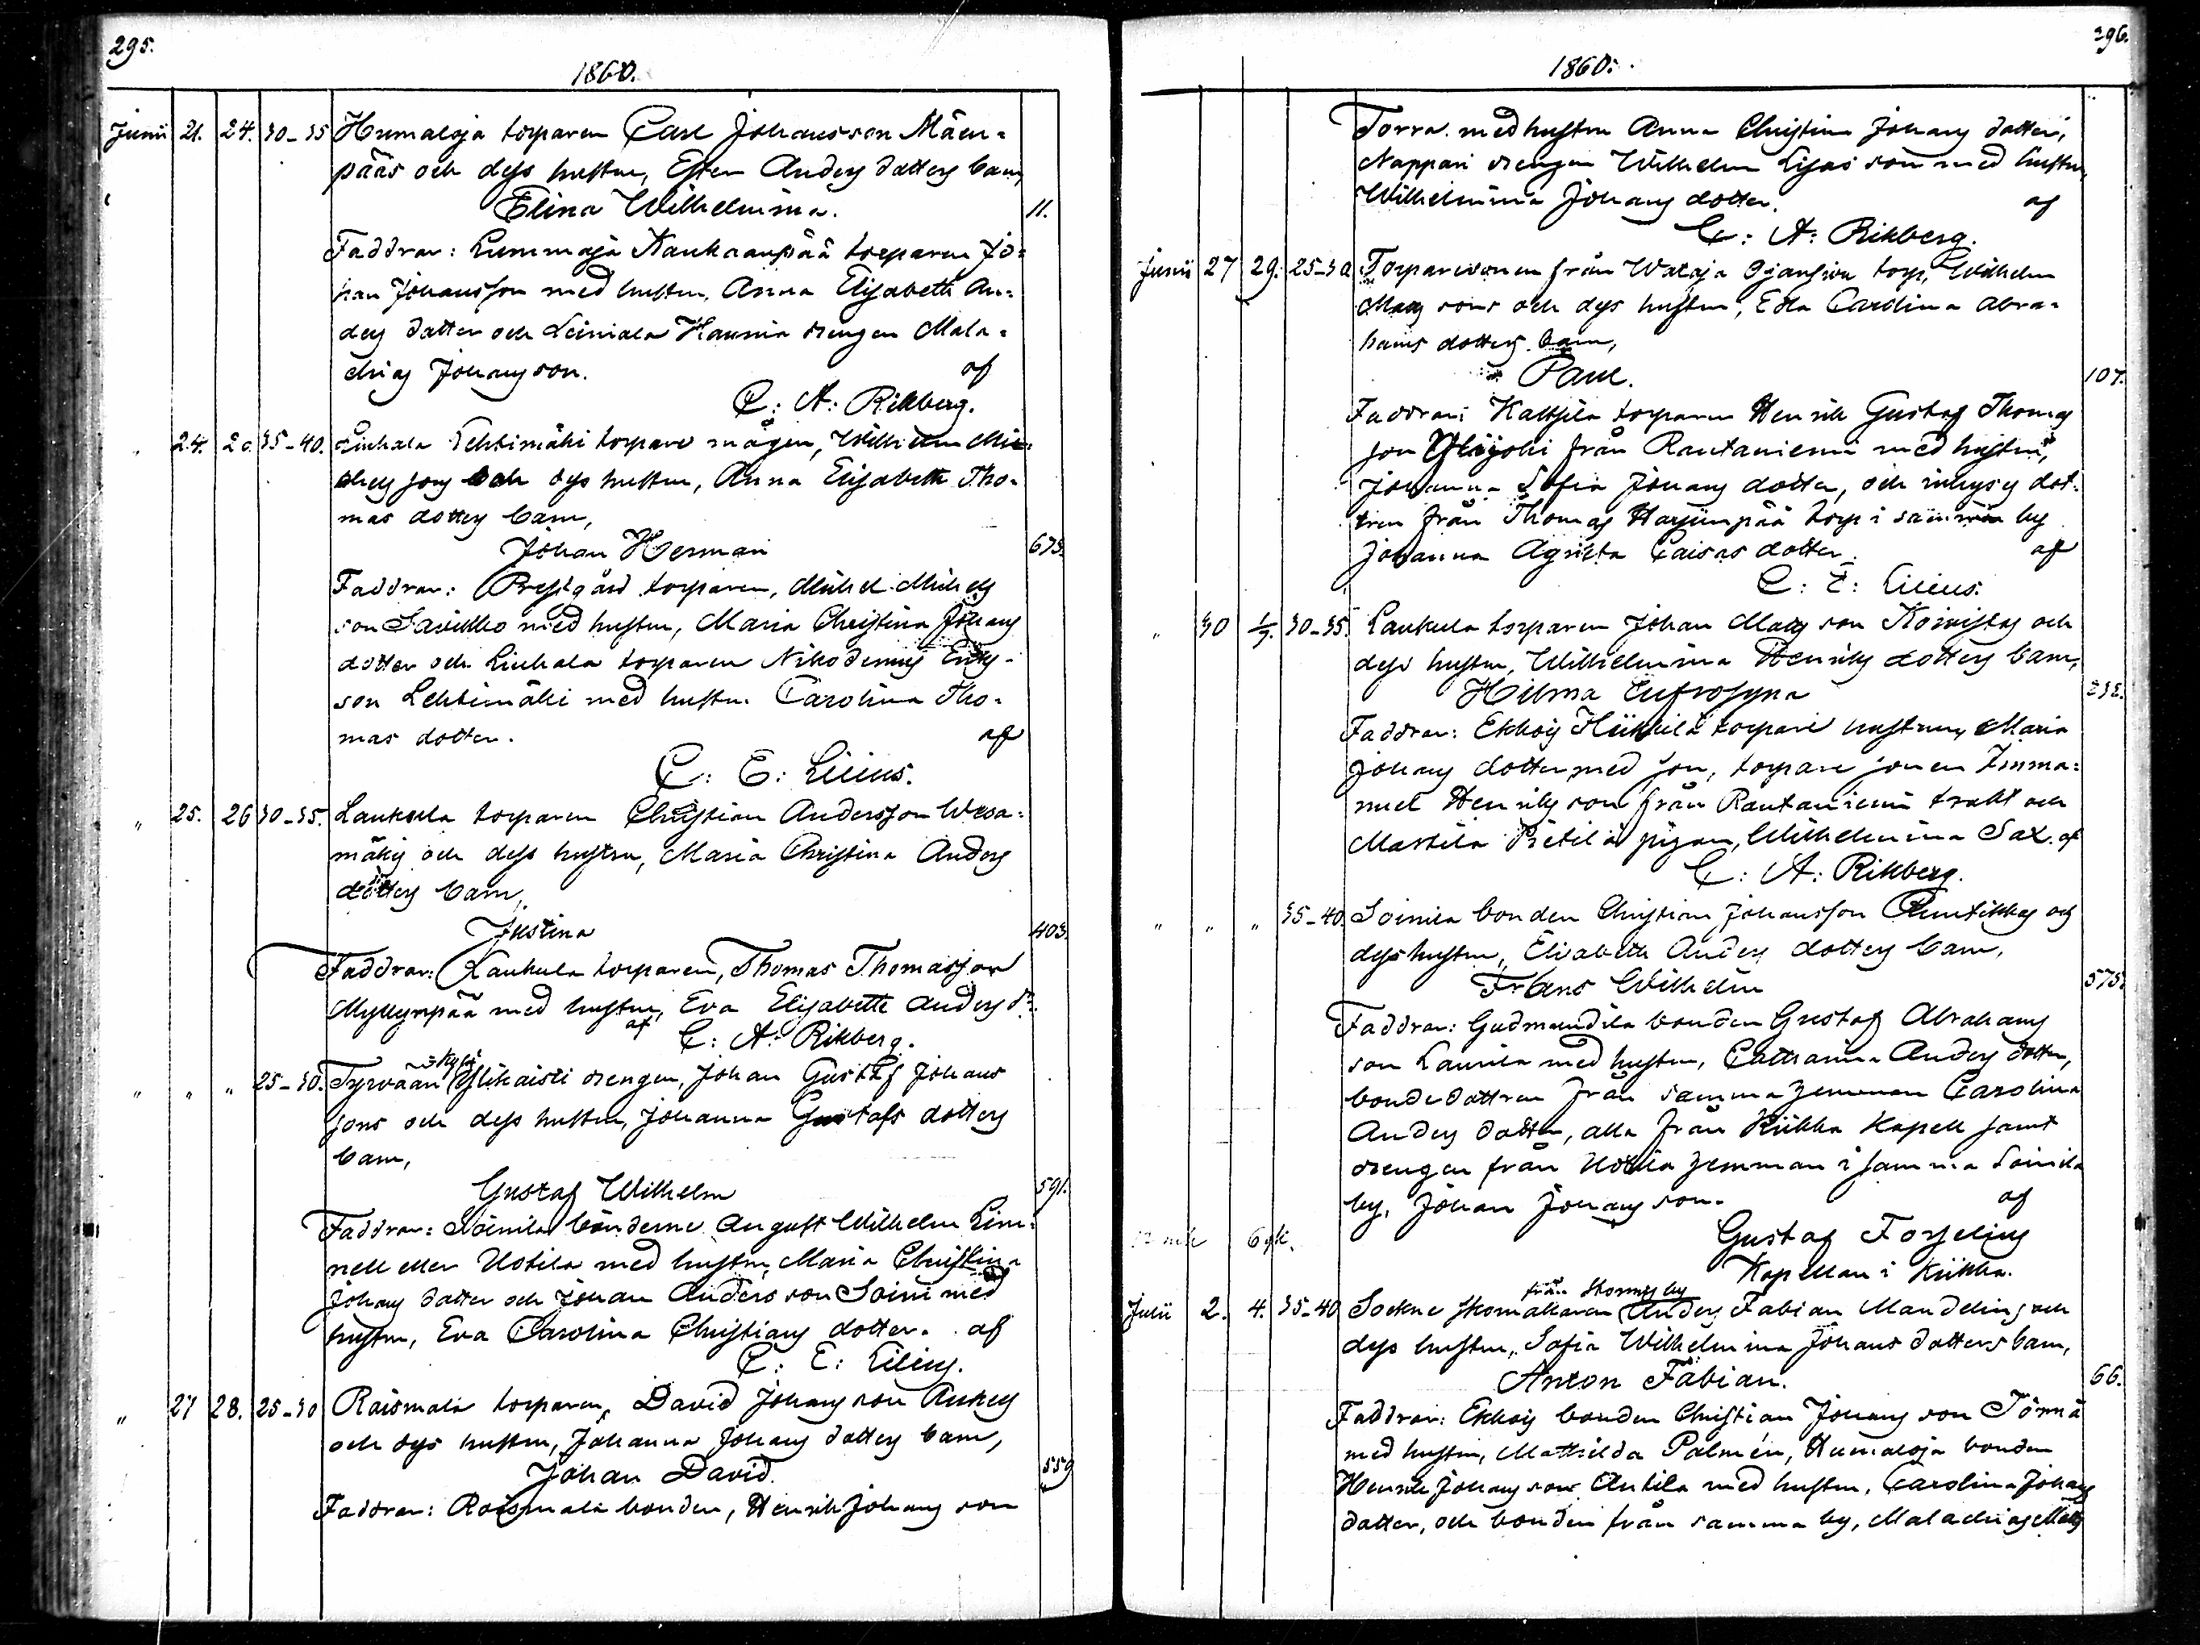 295.
1860.
Junii 21. 24. 30-35 Humaloja torparen Carl Johansson Mäen-
pääs och dess hustru, Ester Anders dotters barn,
Elina Wilhelmina. 11.
Faddrar: Lummaja Kaukaanpää torparen Jo-
han Johansson med hustru, Anna Elisabeth An-
ders dotter och Leiniala Haunia drengen Mala-
chias Johansson. af
C: A: Rikberg.
" 24. 35-40. Liuhala Lehtimäki torpare mågen, Wilhelm Mi-
chels sons och dess hustru, Anna Elisabeth Tho-
mas dotters barn,
Johan Herman 675.
Faddrar: Prestgård torparen, Michel Michels
son Savikko med hustru, Maria Christina Johans
dotter och Liuhala torparen Nikodemus Eriks-
son Lehtimäki med hustru Carolina Tho-
mas dotter. af
C: E: Lilius.
" 25. 26 30-35. Laukula torparen Christian Andersson Wesa-
mäkis och dess hustru, Maria Christina Anders
dotters barn,
Justina 403.
Faddrar: Laukula torparen, Thomas Thomasson
Myllynpää med hustru, Eva Elisabeth Anders dr.
af C: A: Rikberg.
" " " 25-30. Tyrvään Ylikaisti drengen, Johan Gustaf Johans
sons och dess hustru, Johanna Gustafs dotters
barn,
Gustaf Wilhelm 591.
Faddrar: Soinila bönderne August Wilhelm Lin-
nell eller Uotila med hustru, Maria Christina
Johans dotter och Johan Anders son Soini med
hustru, Eva Carolina Christians dotter. af
C: E: Lilius.
" 27 28. 25-30 Raismala torparen, David Johans son Ankes
och dess hustru, Johanna Johans dotters barn,
Johan David. 559
Faddrar: Raismala bonden, Henrik Johans son
296.
1860.
Torra med hustru Anna Christina Johans dotter,
Nappari drengen Wilhelm Elias son med hustru,
Wilhelmina Johans dotter. af
C: A: Rikberg.
Junii 27 29. 25-30. Torparesonen från Wataja Ojansivu torp, Wilhelm
Mats sons och dess hustru, Edla Carolina Abra-
hams dotters barn,
Paul. 107.
Faddrar: Kaltsila torparen Henrik Gustaf Thomas
son Ylijoki från Rautaniemi med hustru,
Johanna Sofia Johans dotter, och inhyses dot-
tren från Thomas Harjunpää torp i samma by
Johanna Agneta Caisas dotter. af
C: E: Lilius.
" 30 1/7. 30-35. Laukula torparen Johan Mats son Koivistos och
dess hustru, Wilhelmina Henriks dotters barn,
Hilma Eufrosyna
Faddrar: Ekkois Hiukkilä torpare hustrun, Maria
Johans dotter med son, torpare sonen Emma-
nuel Henriks son från Rautaniemi trakt och
Marttila Pietilä pigan, Wilhelmina Sax. af
C: A: Rikberg.
" " " 35-40. Soinila bonden Christian Johansson Runtikkas och
dess hustru, Elisabeth Anders dotters barn,
Frans Wilhelm 575.
Faddrar: Gudmundila bonden Gustaf Abrahams
son Laurila med hustru, Catharina Anders dotter,
bondedottren från samma hemman Carolina
Anders dotter, alla från Kiikka Kapell samt
drengen från Uotila hemman i samma Soinila
by, Johan Johans son. af
Gustaf Forselius
Kapellan i Kiikka.
Julii 2. 4. 35-40 Sockne skomakaren från Stormis by Anders Fabian Mandelins och
dess hustru, Sofia Wilhelmina Johans dotters barn,
Anton Fabian. 66.
Faddrar: Ekkois bonden Christian Johans son Törmä
med hustru, Mathilda Palmén, Humaloja bonden
Henrik Johans son Antila med hustru, Carolina Johans
dotter, och bonden från samma by, Malachias Mats